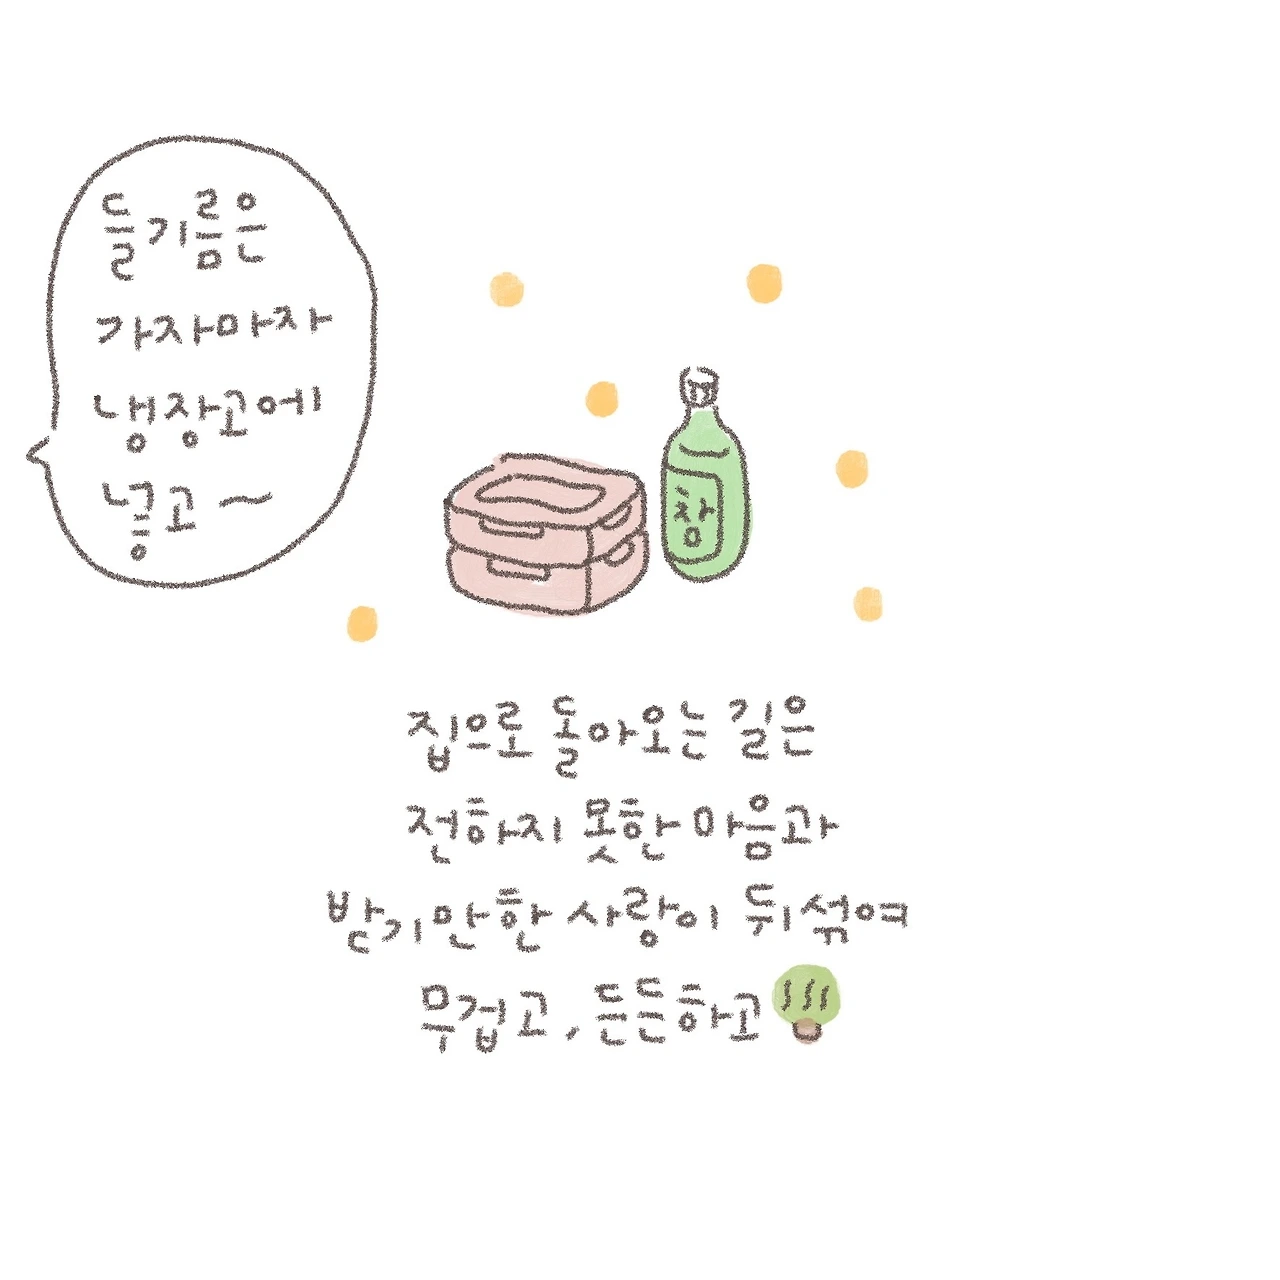 들기름은
가자마자
냉장고에
넣고~
참
집으로 돌아오는 길은
전하지 못한 마음과
받기만한 사랑이 뒤섞여
무겁고, 든든하고